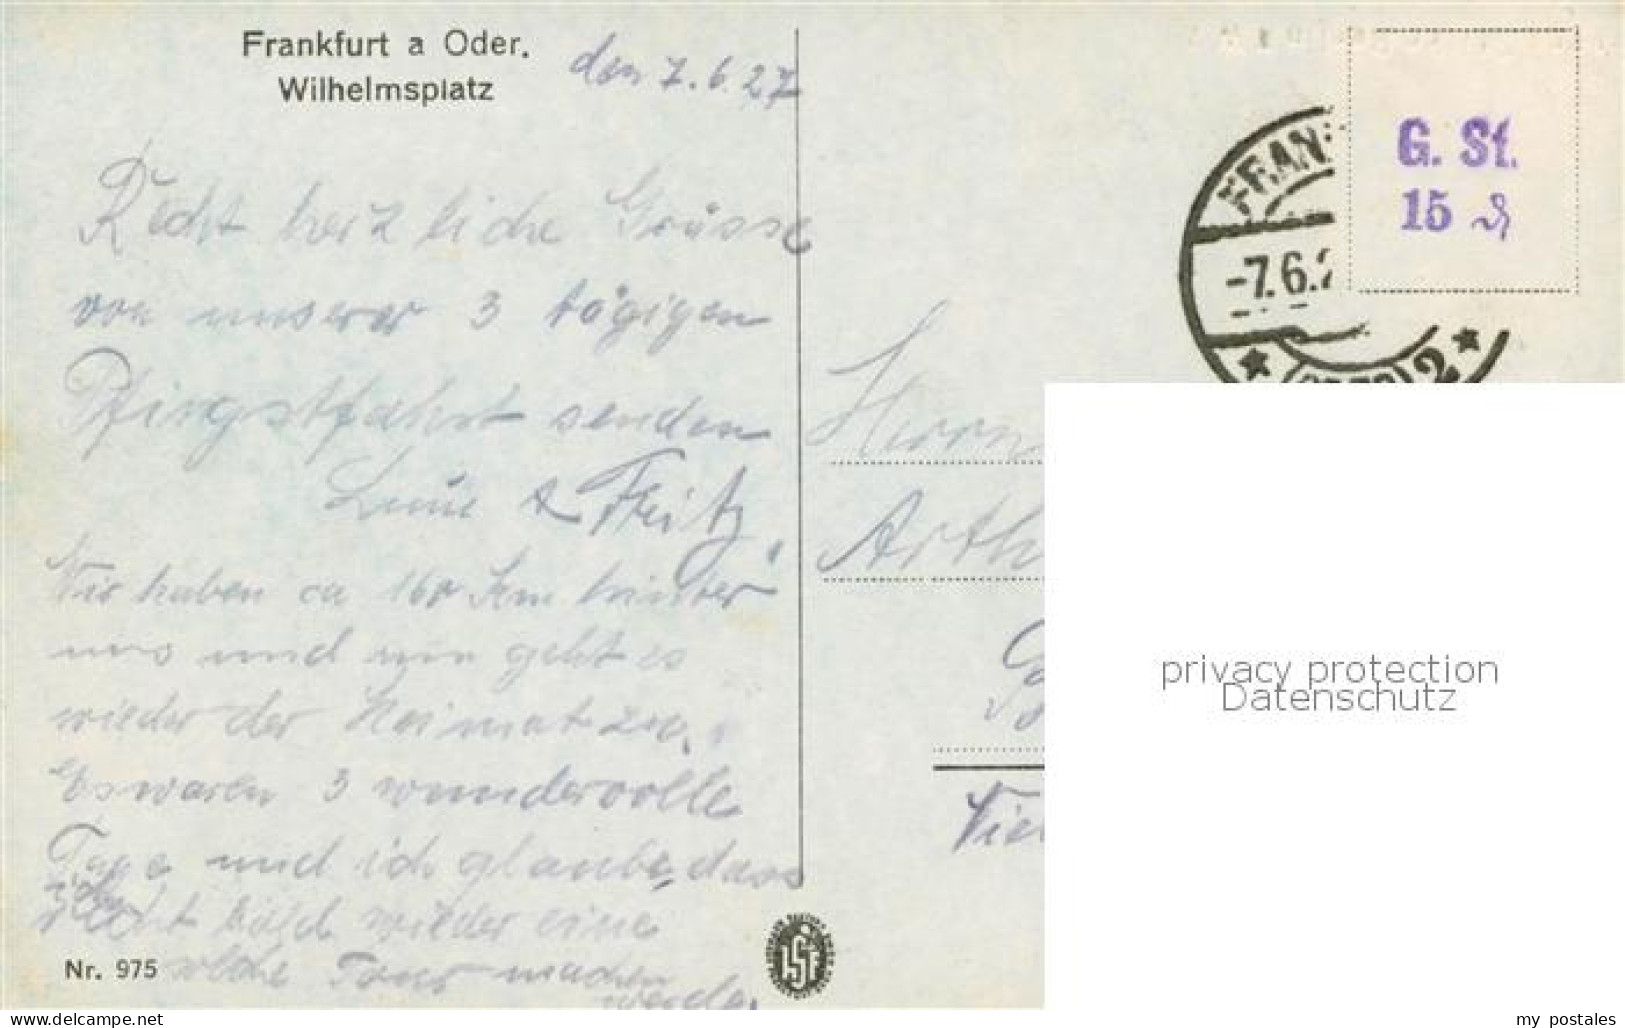 Frankfurt a Oder.
Wilhelmsplatz
den 7.6.27
Recht herzliche Grüsse
von unserer 3 tägigen
Pfingstfahrt senden
& Fritz
Wir haben ca 160 Km hinter
uns und nun geht es
wieder der Heimat zu.
Es waren 3 wundervolle
Tage und ich glaube, dass
ich nicht bald wieder eine
solche Tour machen
werde.
Nr. 975
FRAN
-7.6.2
2
G. St.
15 ₰
Herrn
Arth
Viel
privacy protection
Datenschutz
delcampe.net
my_postales